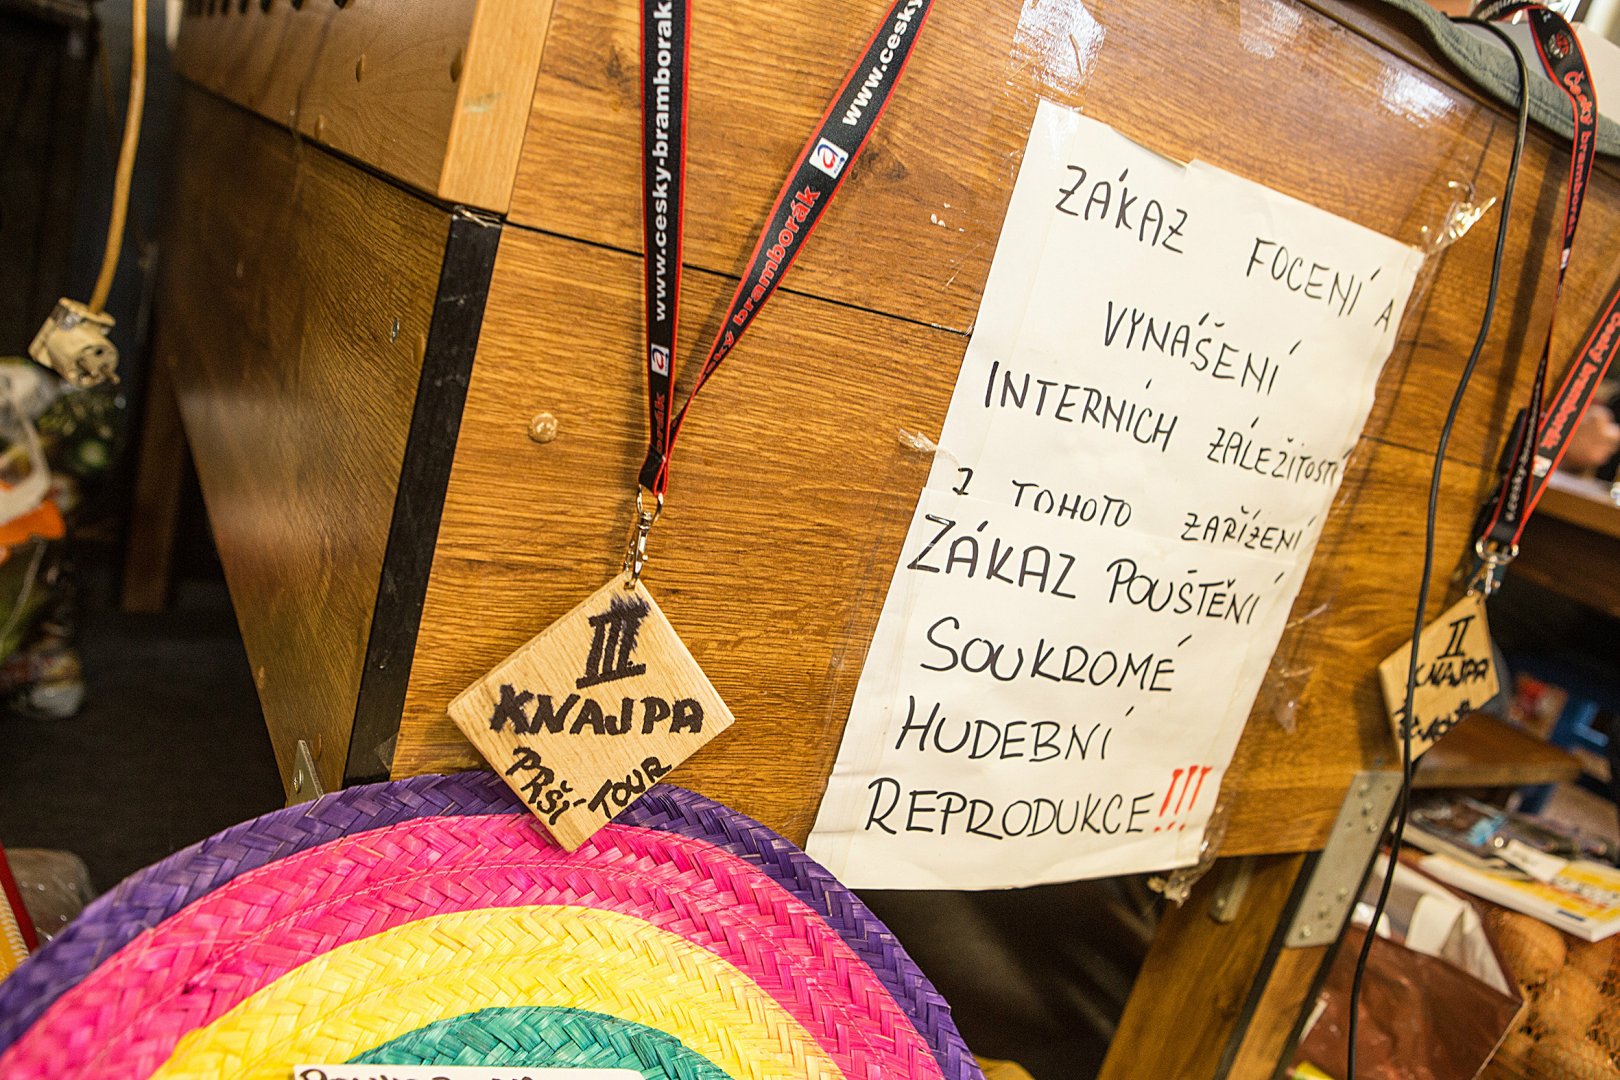 www.cesky-bramborak.
www.cesky
český bramborák
III
KNAJPA
PRŠÍ TOUR
ZÁKAZ FOCENÍ A
VYNÁŠENÍ
INTERNÍCH ZÁLEŽITOSTÍ
Z TOHOTO ZAŘÍZENÍ
ZÁKAZ POUŠTĚNÍ
SOUKROMÉ
HUDEBNÍ
REPRODUKCE!!!
Český bramborák
český bramborák
II
KNAJPA